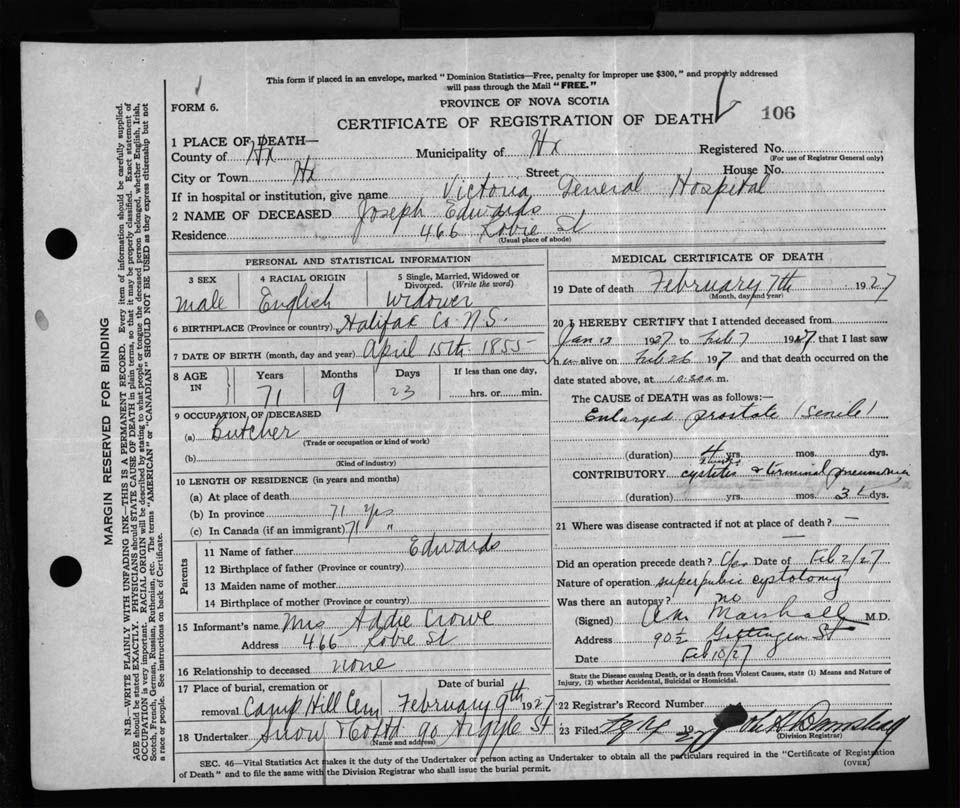 This form if placed in an envelope, marked "Dominion Statistics—Free, penalty for improper use $300," and properly addressed
will pass through the Mail "FREE."
FORM 6.
PROVINCE OF NOVA SCOTIA
CERTIFICATE OF REGISTRATION OF DEATH
106
1 PLACE OF DEATH—
County of Hx Municipality of Hx Registered No.
(For use of Registrar General only)
City or Town Hx Street House No.
If in hospital or institution, give name Victoria General Hospital
2 NAME OF DECEASED Joseph Edwards
Residence 466 Robie St
(Usual place of abode)
PERSONAL AND STATISTICAL INFORMATION
3 SEX 4 RACIAL ORIGIN 5 Single, Married, Widowed or Divorced. (Write the word)
Male English Widower
6 BIRTHPLACE (Province or country) Halifax Co N.S.
7 DATE OF BIRTH (month, day and year) April 15th 1855
8 AGE IN Years Months Days If less than one day,
71 9 23 hrs. or min.
9 OCCUPATION OF DECEASED
(a) Butcher
(Trade or occupation or kind of work)
(b)
(Kind of industry)
10 LENGTH OF RESIDENCE (in years and months)
(a) At place of death
(b) In province 71 yrs
(c) In Canada (if an immigrant) 71 "
Parents
11 Name of father Edwards
12 Birthplace of father (Province or country)
13 Maiden name of mother
14 Birthplace of mother (Province or country)
15 Informant's name Mrs Addie Crowe
Address 466 Robie St
16 Relationship to deceased none
17 Place of burial, cremation or removal Date of burial
Camp Hill Cem February 9th 1927
18 Undertaker Snow & Co Ltd 90 Argyle St
(Name and address)
MEDICAL CERTIFICATE OF DEATH
19 Date of death February 7th 1927
(Month, day and year)
20 I HEREBY CERTIFY that I attended deceased from
Jan 13 1927 to Feb 7 1927, that I last saw
h im alive on Feb 6 1927 and that death occurred on the
date stated above, at m.
The CAUSE of DEATH was as follows:—
Enlarged prostate (senile)
(duration) 4 yrs. mos. dys.
CONTRIBUTORY cystitis & terminal pneumonia
(duration) yrs. mos. 3 dys.
21 Where was disease contracted if not at place of death? —
Did an operation precede death? Yes Date of Feb 2/27
Nature of operation suprapubic cystotomy
Was there an autopsy? no
(Signed) Marshall M.D.
Address 90½ Gottingen St
Date Feb 10/27
State the Disease causing Death, or in death from Violent Causes, state (1) Means and Nature of
Injury, (2) whether Accidental, Suicidal or Homicidal.
22 Registrar's Record Number
23 Filed 19
(Division Registrar)
SEC. 46—Vital Statistics Act makes it the duty of the Undertaker or person acting as Undertaker to obtain all the particulars required in the "Certificate of Registration
of Death" and to file the same with the Division Registrar who shall issue the burial permit.
(OVER)
MARGIN RESERVED FOR BINDING
N.B.—WRITE PLAINLY WITH UNFADING INK—THIS IS A PERMANENT RECORD. Every item of information should be carefully supplied.
AGE should be stated EXACTLY. PHYSICIANS should STATE CAUSE OF DEATH in plain terms, so that it may be properly classified. Exact statement of
OCCUPATION is very important. RACIAL ORIGIN will be described by stating to what people or tongue the deceased person belonged, whether English, Irish,
Scotch, French, German, Russian, Ruthenian, etc. The terms "AMERICAN" or "CANADIAN" SHOULD NOT BE USED as they express citizenship but not
a race or people. See instructions on back of Certificate.